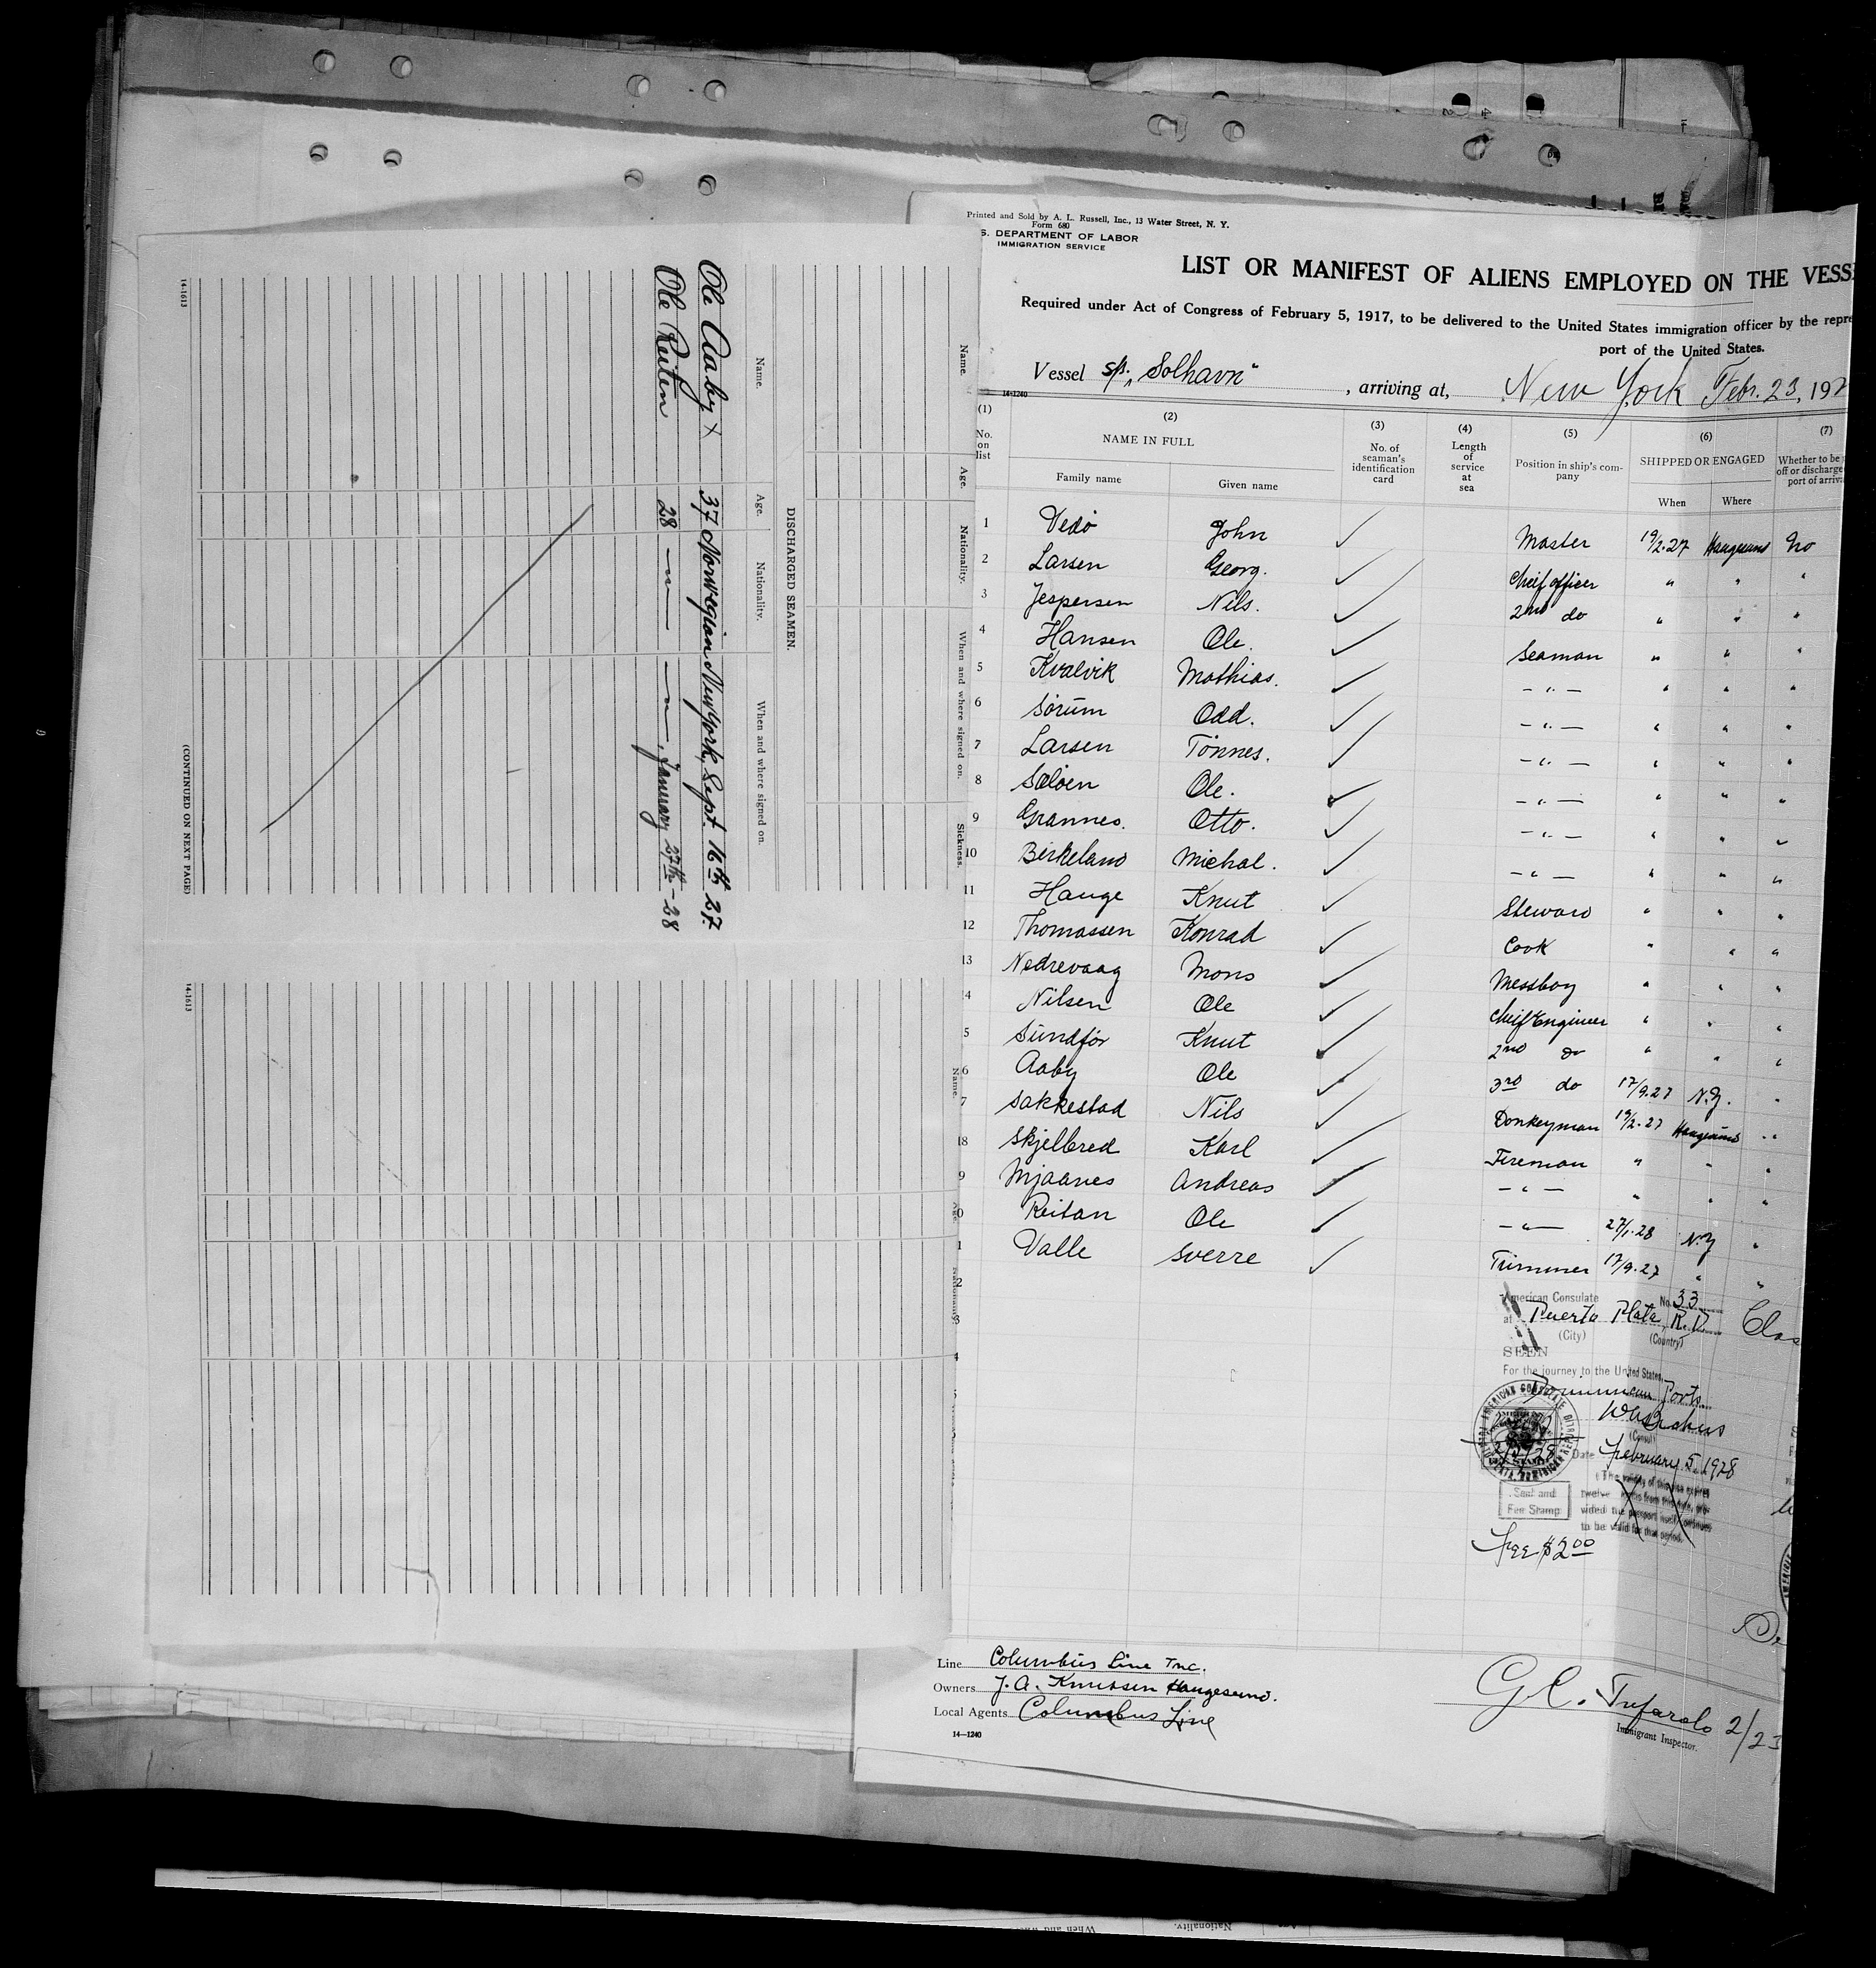 Name.
Age.
Nationality.
When and where signed on.
Sickness.
DISCHARGED SEAMEN.
Name. Age. Nationality. When and where signed on.
Ole Aaby x 37 Norwegian New York, Sept. 16th 27.
Ole Reiten 28 — " — — " —, January 27th - 28
14-1613
(CONTINUED ON NEXT PAGE)
14-1613
Printed and Sold by A. L. Russell, Inc., 13 Water Street, N. Y.
Form 680
S. DEPARTMENT OF LABOR
IMMIGRATION SERVICE
LIST OR MANIFEST OF ALIENS EMPLOYED ON THE VESS
Required under Act of Congress of February 5, 1917, to be delivered to the United States immigration officer by the repre
port of the United States.
Vessel s/s. „Solhavn" , arriving at, New York Febr. 23, 192
14-1240
(1) (2) (3) (4) (5) (6) (7)
No. on list
NAME IN FULL
Family name Given name
No. of seaman's identification card
Length of service at sea
Position in ship's company
SHIPPED OR ENGAGED
When Where
Whether to be
off or discharge
port of arriva
1 Vedö John ✓ Master 19/2.27 Haugesund No
2 Larsen Georg. ✓ Cheif officer " " "
3 Jespersen Nils. ✓ 2nd do " " "
4 Hansen Ole. ✓ Seaman " " "
5 Kvalvik Mathias. ✓ — " — " " "
6 Sörum Odd. ✓ — " — " " "
7 Larsen Tönnes. ✓ — " — " " "
8 Söloen Ole. ✓ — " — " " "
9 Grannes. Otto. ✓ — " — " " "
10 Birkeland Michal. ✓ — " — " " "
11 Hauge Knut ✓ Steward " " "
12 Thomassen Konrad ✓ Cook " " "
13 Nedrevaag Mons ✓ Messboy " " "
4 Nilsen Ole ✓ Cheif Engineer " " "
5 Sundför Knut ✓ 2nd do " " "
6 Aaby Ole ✓ 3rd do 17/9.27 N.Y. "
7 Sakkestad Nils ✓ Donkeyman 19/2.27 Haugesund "
18 Skjelbred Karl ✓ Fireman " " "
9 Mjaanes Andreas ✓ — " — " " "
0 Reitan Ole ✓ — " — 27/1.28 N.Y "
1 Valle Sverre ✓ Trimmer 17/9.27 " "
2
3
4
American Consulate No. 33
at Puerto Plata, R.D.
(City) (Country)
SEEN
For the journey to the United States
Ports
(Consul)
Date February 5, 1928
(The validity of this visa expires
twelve months from this date, pro-
vided the passport itself continues
to be valid for that period.
Seal and
Fee Stamp
Fee $2.00
Line Columbus Line Inc.
Owners J. A. Knutsen Haugesund.
Local Agents Columbus Line
14—1240
G. C. Tufarolo 2/23
Immigrant Inspector.
When and
Nationality.